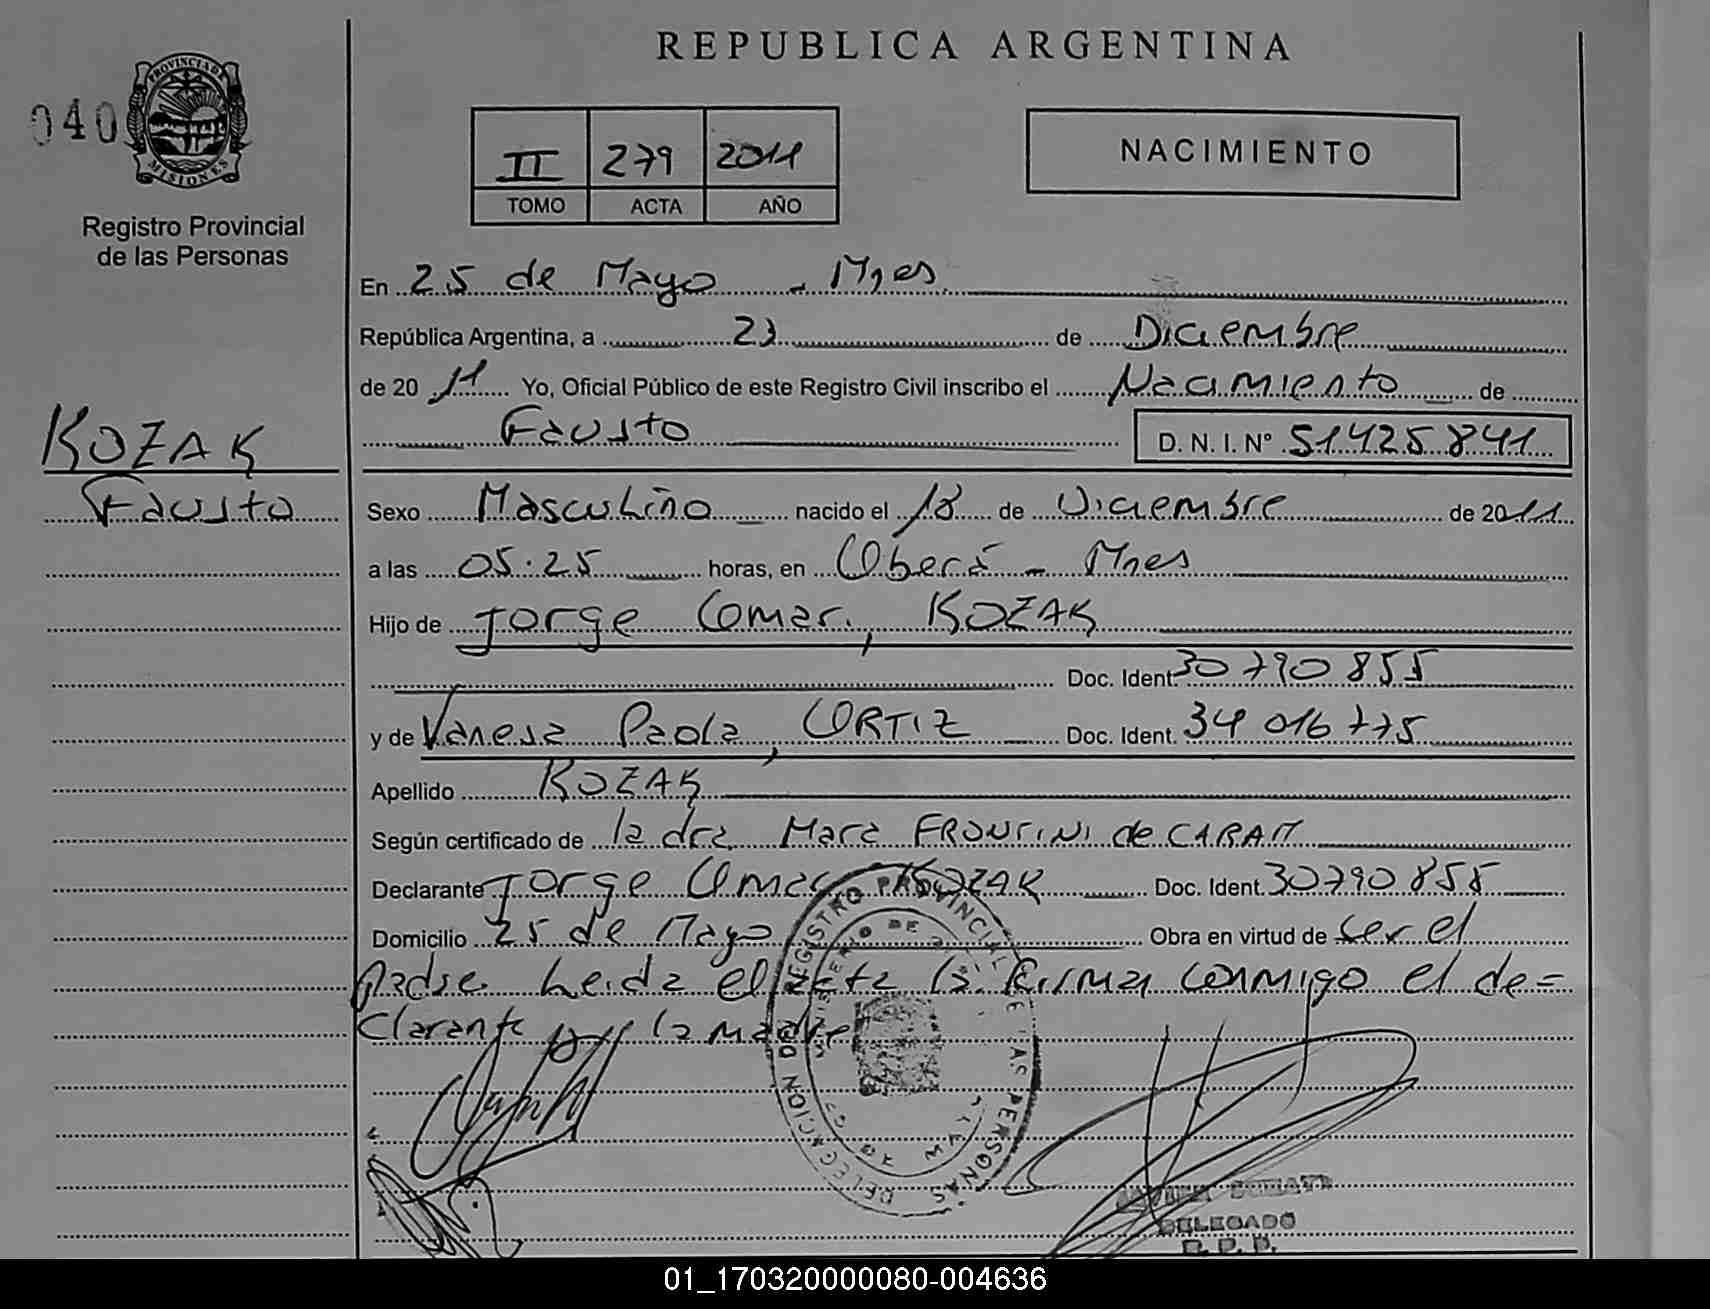 REPUBLICA ARGENTINA
040
PROVINCIA DE
MISIONES
Registro Provincial
de las Personas
II 279 2011
TOMO ACTA AÑO
NACIMIENTO
En 25 de Mayo - Mnes
República Argentina, a 23 de Diciembre
de 20 11 Yo, Oficial Público de este Registro Civil inscribo el Nacimiento de
Fausto D. N. I. Nº 51425841
KOZAK
Fausto
Sexo Masculino nacido el 18 de Diciembre de 2011
a las 05:25 horas, en Oberá - Mnes
Hijo de Jorge Omar, KOZAK
Doc. Ident. 30790855
y de Vanesa Paola, ORTIZ Doc. Ident. 34016775
Apellido KOZAK
Según certificado de la dra Mara de CARAM
Declarante Jorge Omar KOZAK Doc. Ident. 30790855
Domicilio 25 de Mayo Obra en virtud de ser el
padre. Leida el acta la firman conmigo el de=
clarante y la madre
DELEGACION DEL REGISTRO PROVINCIAL DE LAS PERSONAS
MINISTERIO DE
25 DE MAYO
DELEGADO
R. P. P.
01_170320000080-004636